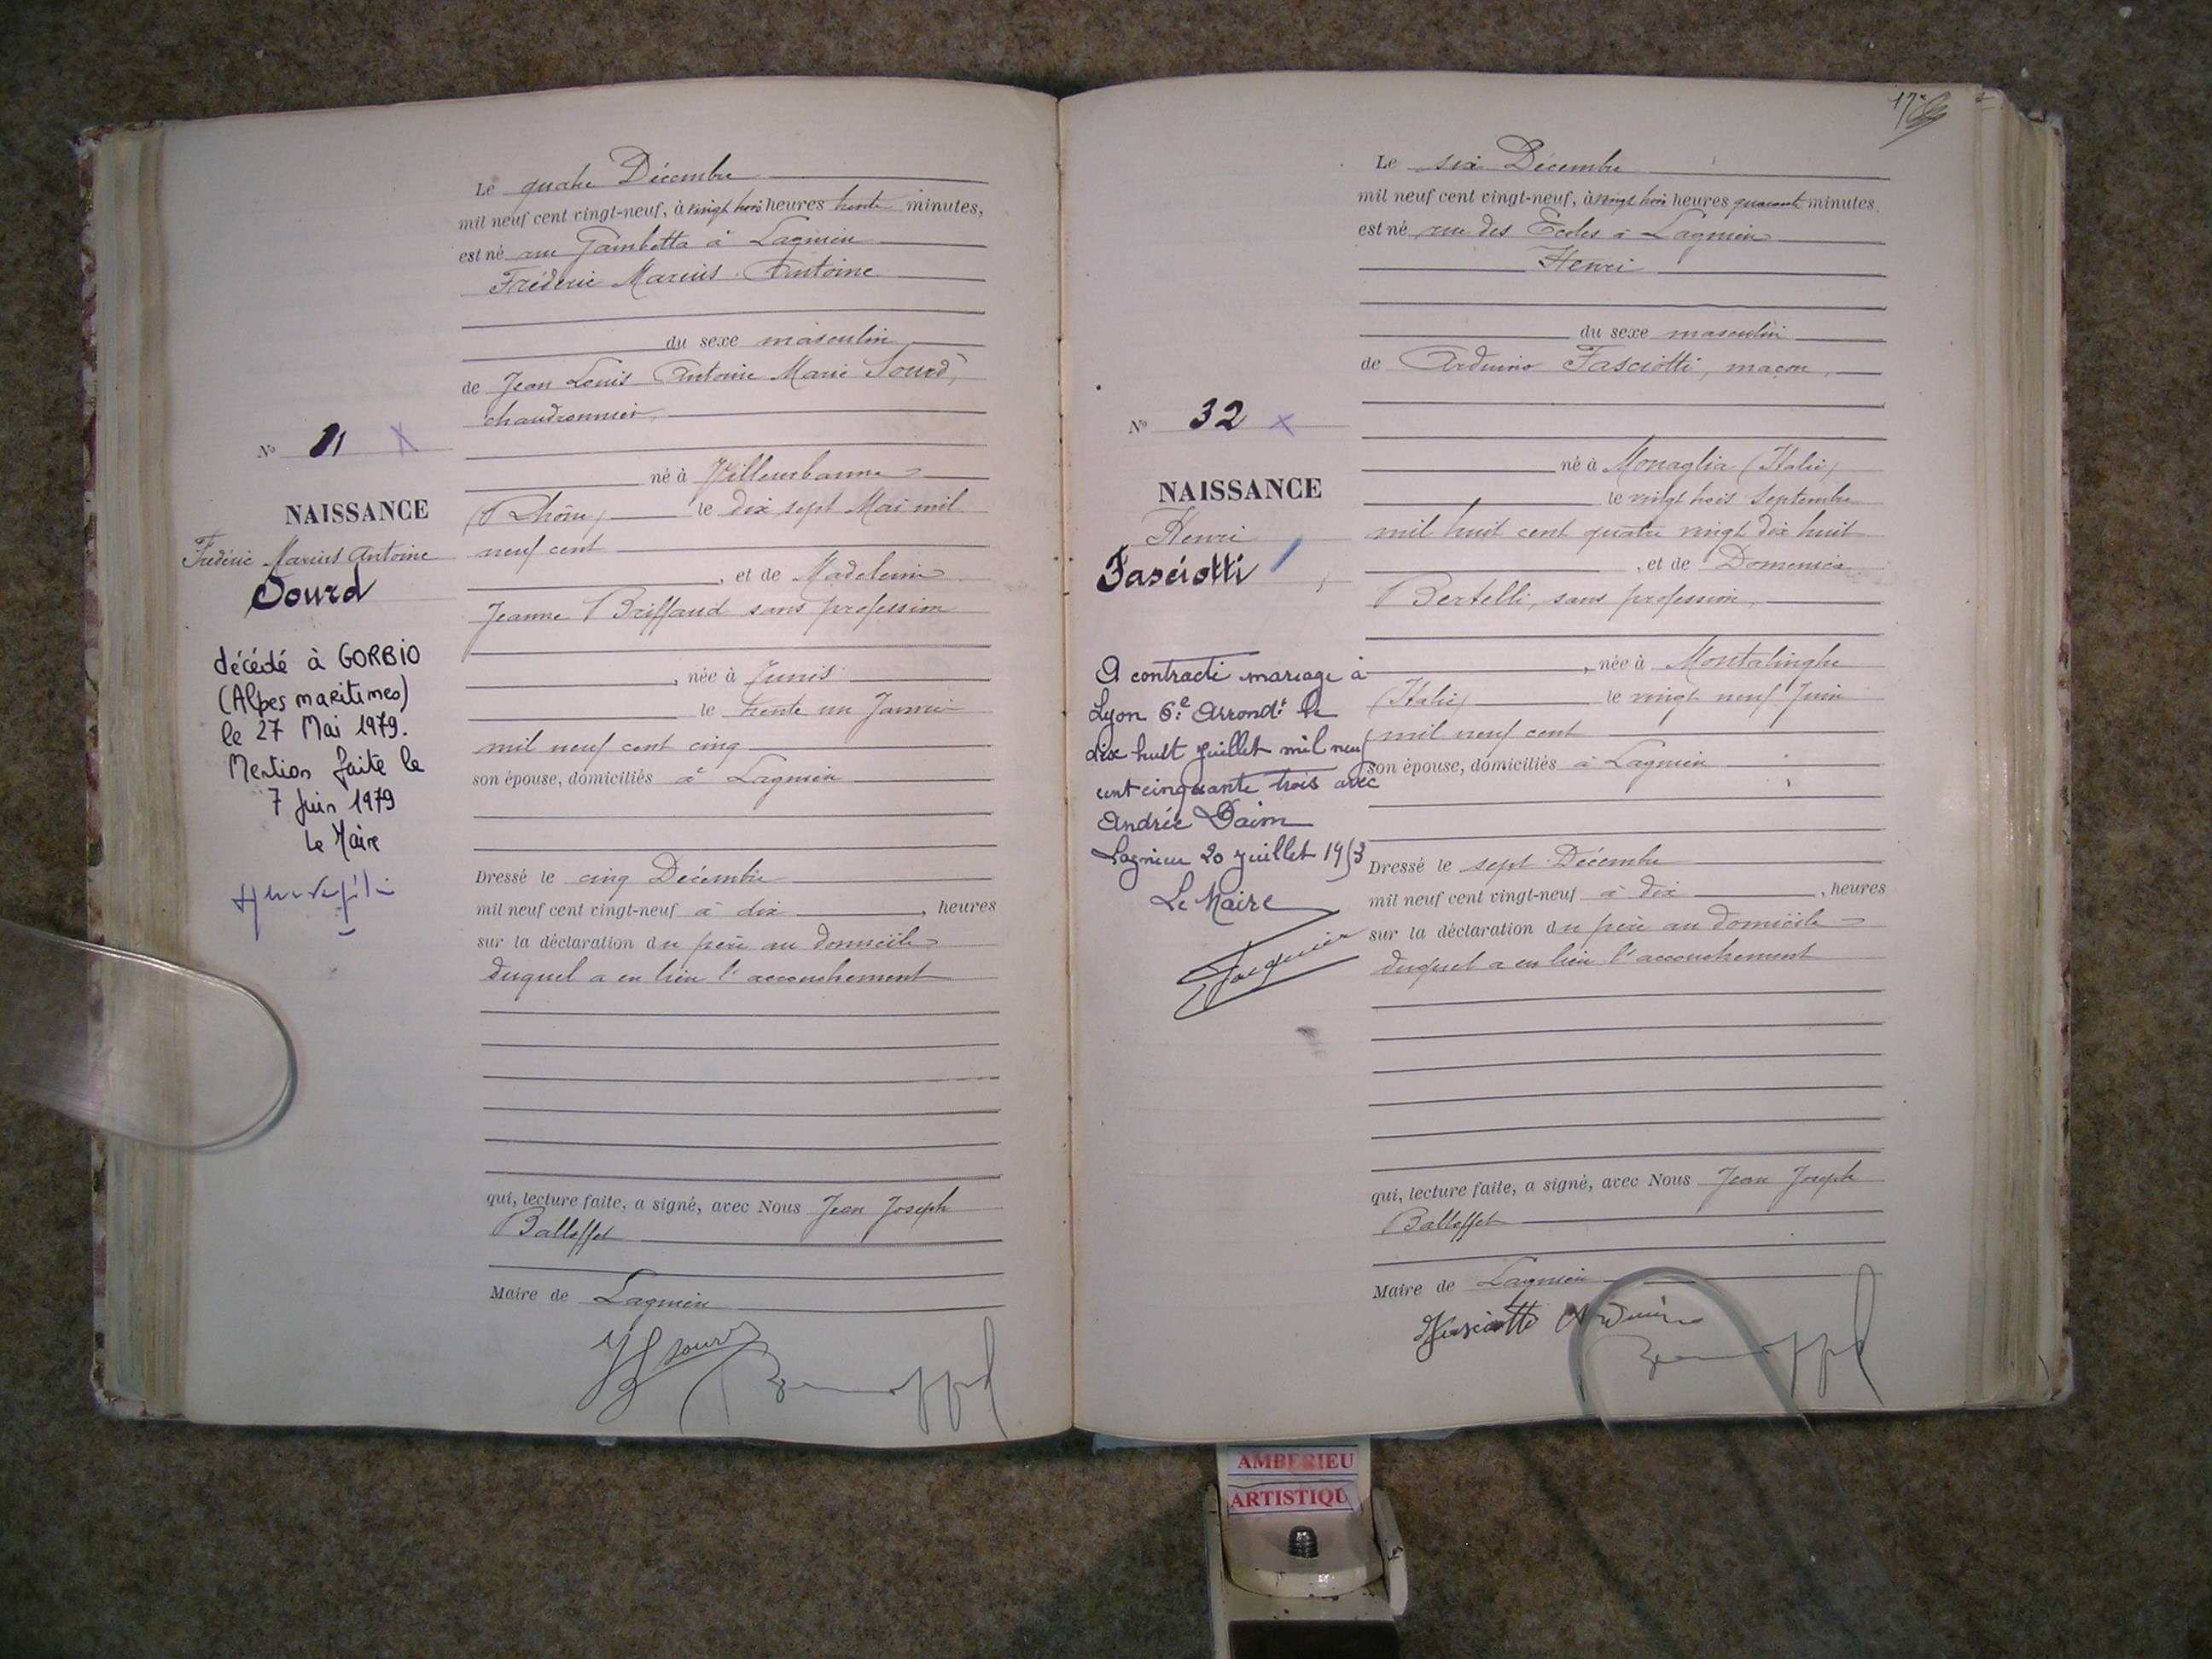 Le quatre Décembre
mil neuf cent vingt-neuf, à vingt trois heures trente minutes,
est né rue Gambetta à Lagnieu
Fréderic Marius Antoine
du sexe masculin
de Jean Louis Antoine Marie Sourd,
chaudronnier,
né à Villeurbanne
(Rhône) le dix sept Mai mil
neuf cent
, et de Madeleine
Jeanne Briffaud sans profession
, née à Tunis
le trente un Janvier
mil neuf cent cinq
son épouse, domiciliés à Lagnieu
Dressé le cinq Décembre
mil neuf cent vingt-neuf à dix , heures
sur la déclaration du père au domicile
duquel a eu lieu l'accouchement
qui, lecture faite, a signé, avec Nous Jean Joseph
Balloffet
Maire de Lagnieu
Sourd
No 31
NAISSANCE
Fréderic Marius Antoine
Sourd
décédé à GORBIO
(Alpes maritimes)
le 27 Mai 1979.
Mention faite le
7 Juin 1979
Le Maire
17
Le six Décembre
mil neuf cent vingt-neuf, à vingt trois heures quarante minutes,
est né rue des Ecoles à Lagnieu
Henri
du sexe masculin
de Arduino Fasciotti, maçon,
né à Monaglia (Italie)
le vingt trois Septembre
mil huit cent quatre vingt dix huit
, et de Domenica
Bertelli, sans profession,
, née à Montalinghe
(Italie) le vingt neuf Juin
mil neuf cent
son épouse, domiciliés à Lagnieu
Dressé le sept Décembre
mil neuf cent vingt-neuf à dix , heures
sur la déclaration du père au domicile
duquel a eu lieu l'accouchement
qui, lecture faite, a signé, avec Nous Jean Joseph
Balloffet
Maire de Lagnieu
Fasciotti Arduino
No 32
NAISSANCE
Henri
Fasciotti
A contracté mariage à
Lyon 6e Arrondt le
dix huit juillet mil neuf
cent cinquante trois avec
Andrée Daim
Lagnieu 20 juillet 1953
Le Maire
Jacquier
AMBERIEU
ARTISTIQU